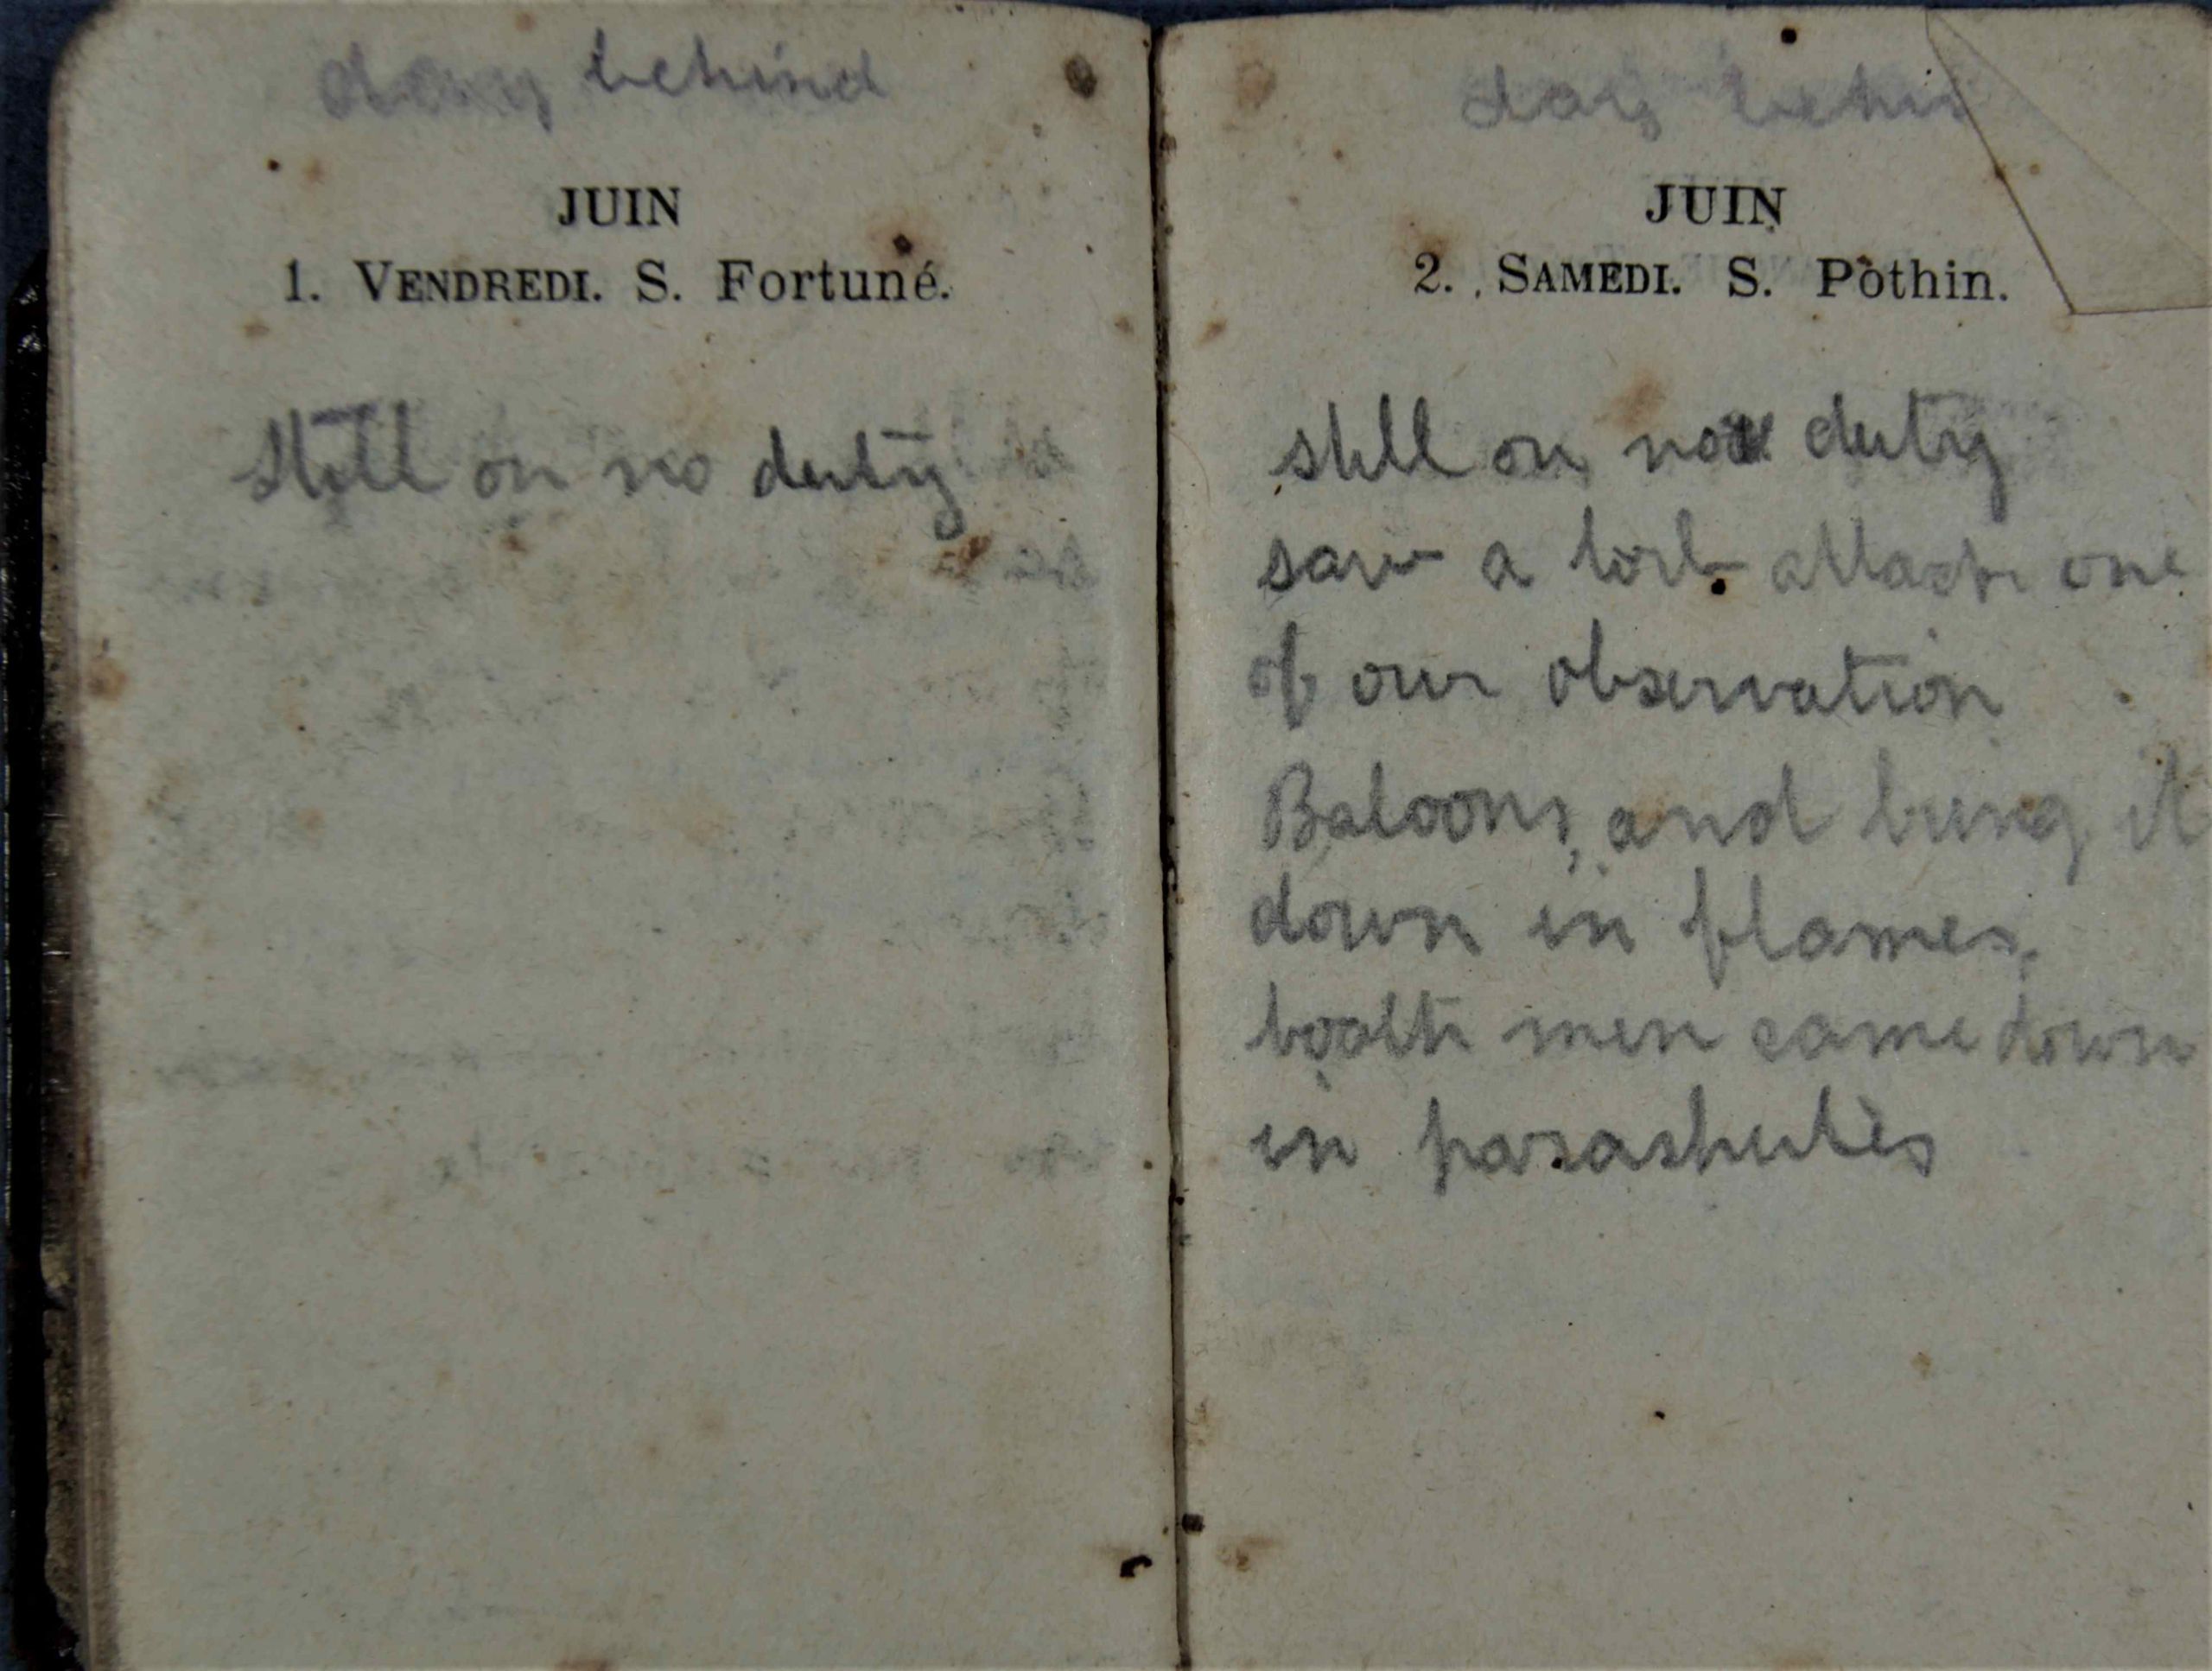 day behind
JUIN
1. VENDREDI. S. Fortuné.
Still on no duty
day behin
JUIN
2. SAMEDI. S. Pothin.
still on no duty
saw a attack one
of our observation
Baloons, and bring it
down in flames.
boalth men came down
in parashutes